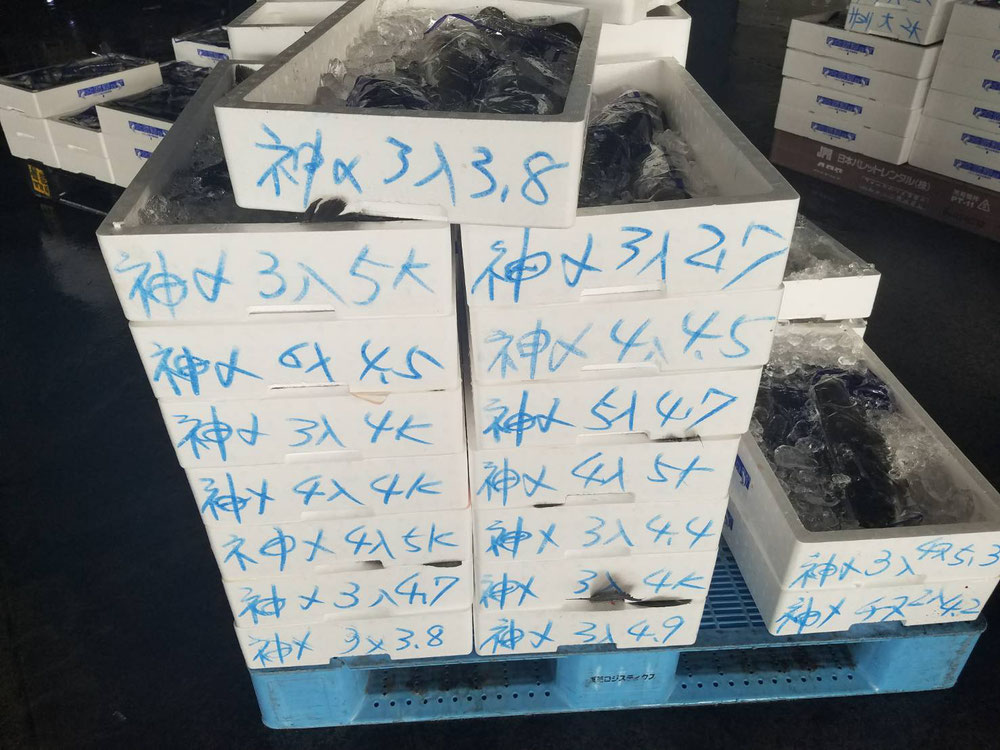 神〆 3入 3.8
神〆 3入 5K
神〆 6入 4.5
神〆 3入 4K
神〆 4入 4K
神〆 4入 5K
神〆 3入 4.7
神〆 3入 3.8
神〆 3入 2.7
神〆 4入 4.5
神〆 5入 4.7
神〆 4入 5K
神〆 3入 4.4
神〆 3入 4K
神〆 3入 4.9
神〆 3入 5.3
神〆 2入 4.2
ロジスティクス
JPR 日本パレットレンタル(株)